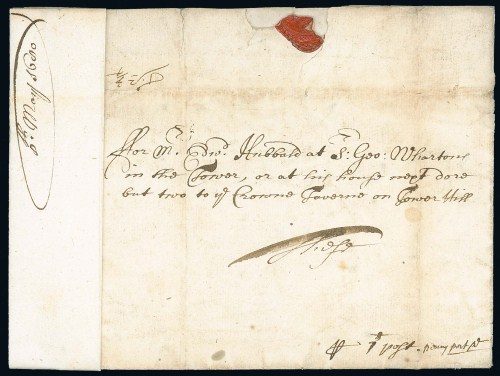 ffor Mr Edwd Hubbald at Sr Geo: Whartons
in the Tower, or at his house next dore
but two to ye Crowne Taverne on Tower Hill
These
post penny post pd
6 May 1660